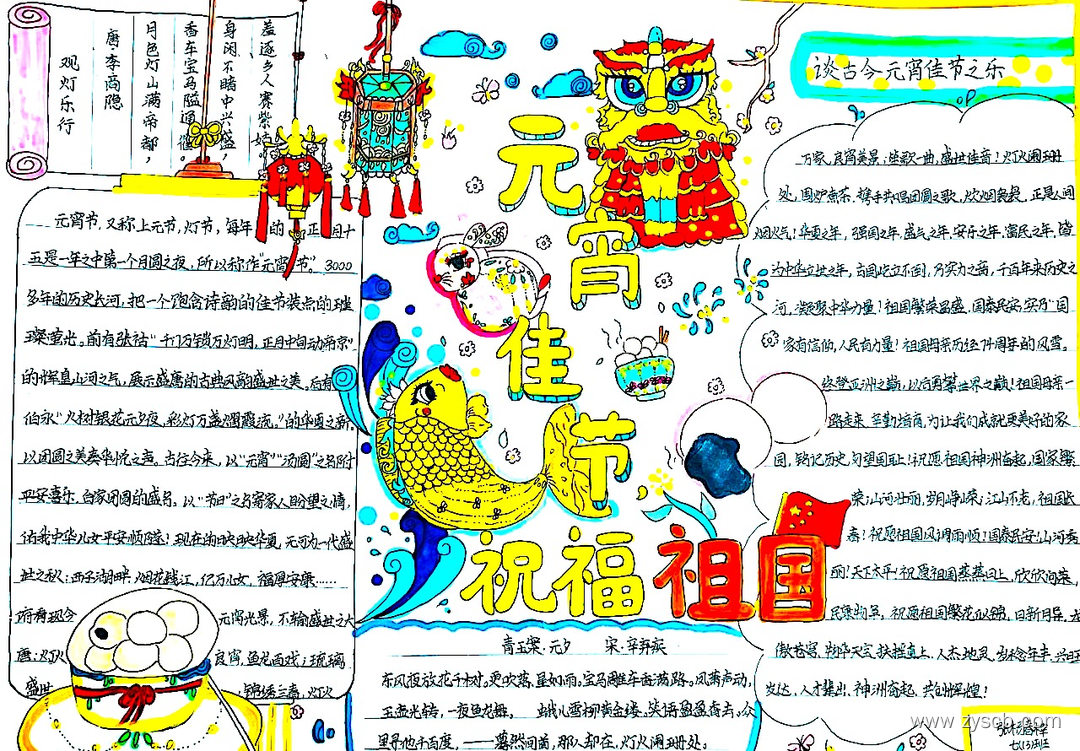 观灯乐行
唐·李商隐
月色灯山满帝都，
香车宝马隘通衢。
身闲不睹中兴盛，
羞逐乡人赛紫姑
元宵佳节
祝福祖国
谈古今元宵佳节之乐
元宵节，又称上元节，灯节，每年的正月十
五是一年之中第一个月圆之夜，所以称作"元宵节"，3000
多年的历史长河，把一个饱含诗韵的佳节装点的璀
璨萤光。前有张祜"千门万锁万灯明，正月中旬动帝京"
的恢皇山河之气，展示盛唐的古典风韵盛世之美。后有
伯永"火树银花元夕夜，彩灯万盏熠霞流。"的华夏之新。
以团圆之美奏华悦之声。古往今来，以"元宵""汤圆"之名附
平安喜乐，合家团圆的盛名。以"节"之名寄家人日盼望之情，
佑我中华儿女平安顺隆！现在的映映华夏，无可为一代盛
世之秋：西子湖畔，烟花钱江，亿万儿女，福厚安康……
府看现今元宵光景，不输盛世之大
唐：灯火良宵，鱼龙百戏；琉璃
盛世，锦绣三春，灯火
万家，良宵美景；笙歌一曲，盛世佳音！灯火阑珊
处，围炉煮茶，携手共唱团圆之歌，炊烟袅袅，正是人间
烟火气！华夏之年，强国之年，盛气之年，安乐之年，富民之年，
为中华立世之年，古国屹立不倒，乃实力之商，千百年来历史之
河，凝聚中华力量！祖国繁荣昌盛，国泰民安，实乃"国
家有信仰，人民有力量！祖国母亲历经74周年的风雪。
终登亚洲之巅，以后再攀世界之巅！祖国母亲一
路走来，辛勤培育，为让我们成就更美好的家
园，铭记历史，勿望国耻！祝愿祖国神洲奋起，国家繁
荣；山河壮丽，岁月峥嵘；江山不老，祖国长
春！祝愿祖国风调雨顺！国泰民安！山河秀
丽！天下太平！祝愿祖国蒸蒸日上，欣欣向荣，
民康物阜，祝愿祖国繁花似锦，日新月异，
傲苍穹，韵华天气，扶摇直上，人杰地灵，
发达，人才辈出，神洲奋起，共创辉煌！
青玉案·元夕 宋·辛弃疾
东风夜放花千树。更吹落，星如雨。宝马雕车香满路。凤箫声动，
玉壶光转，一夜鱼龙舞。 蛾儿雪柳黄金缕。笑语盈盈暗香去。众
里寻他千百度，——蓦然回首，那人却在，灯火阑珊处。
www.zysob.com